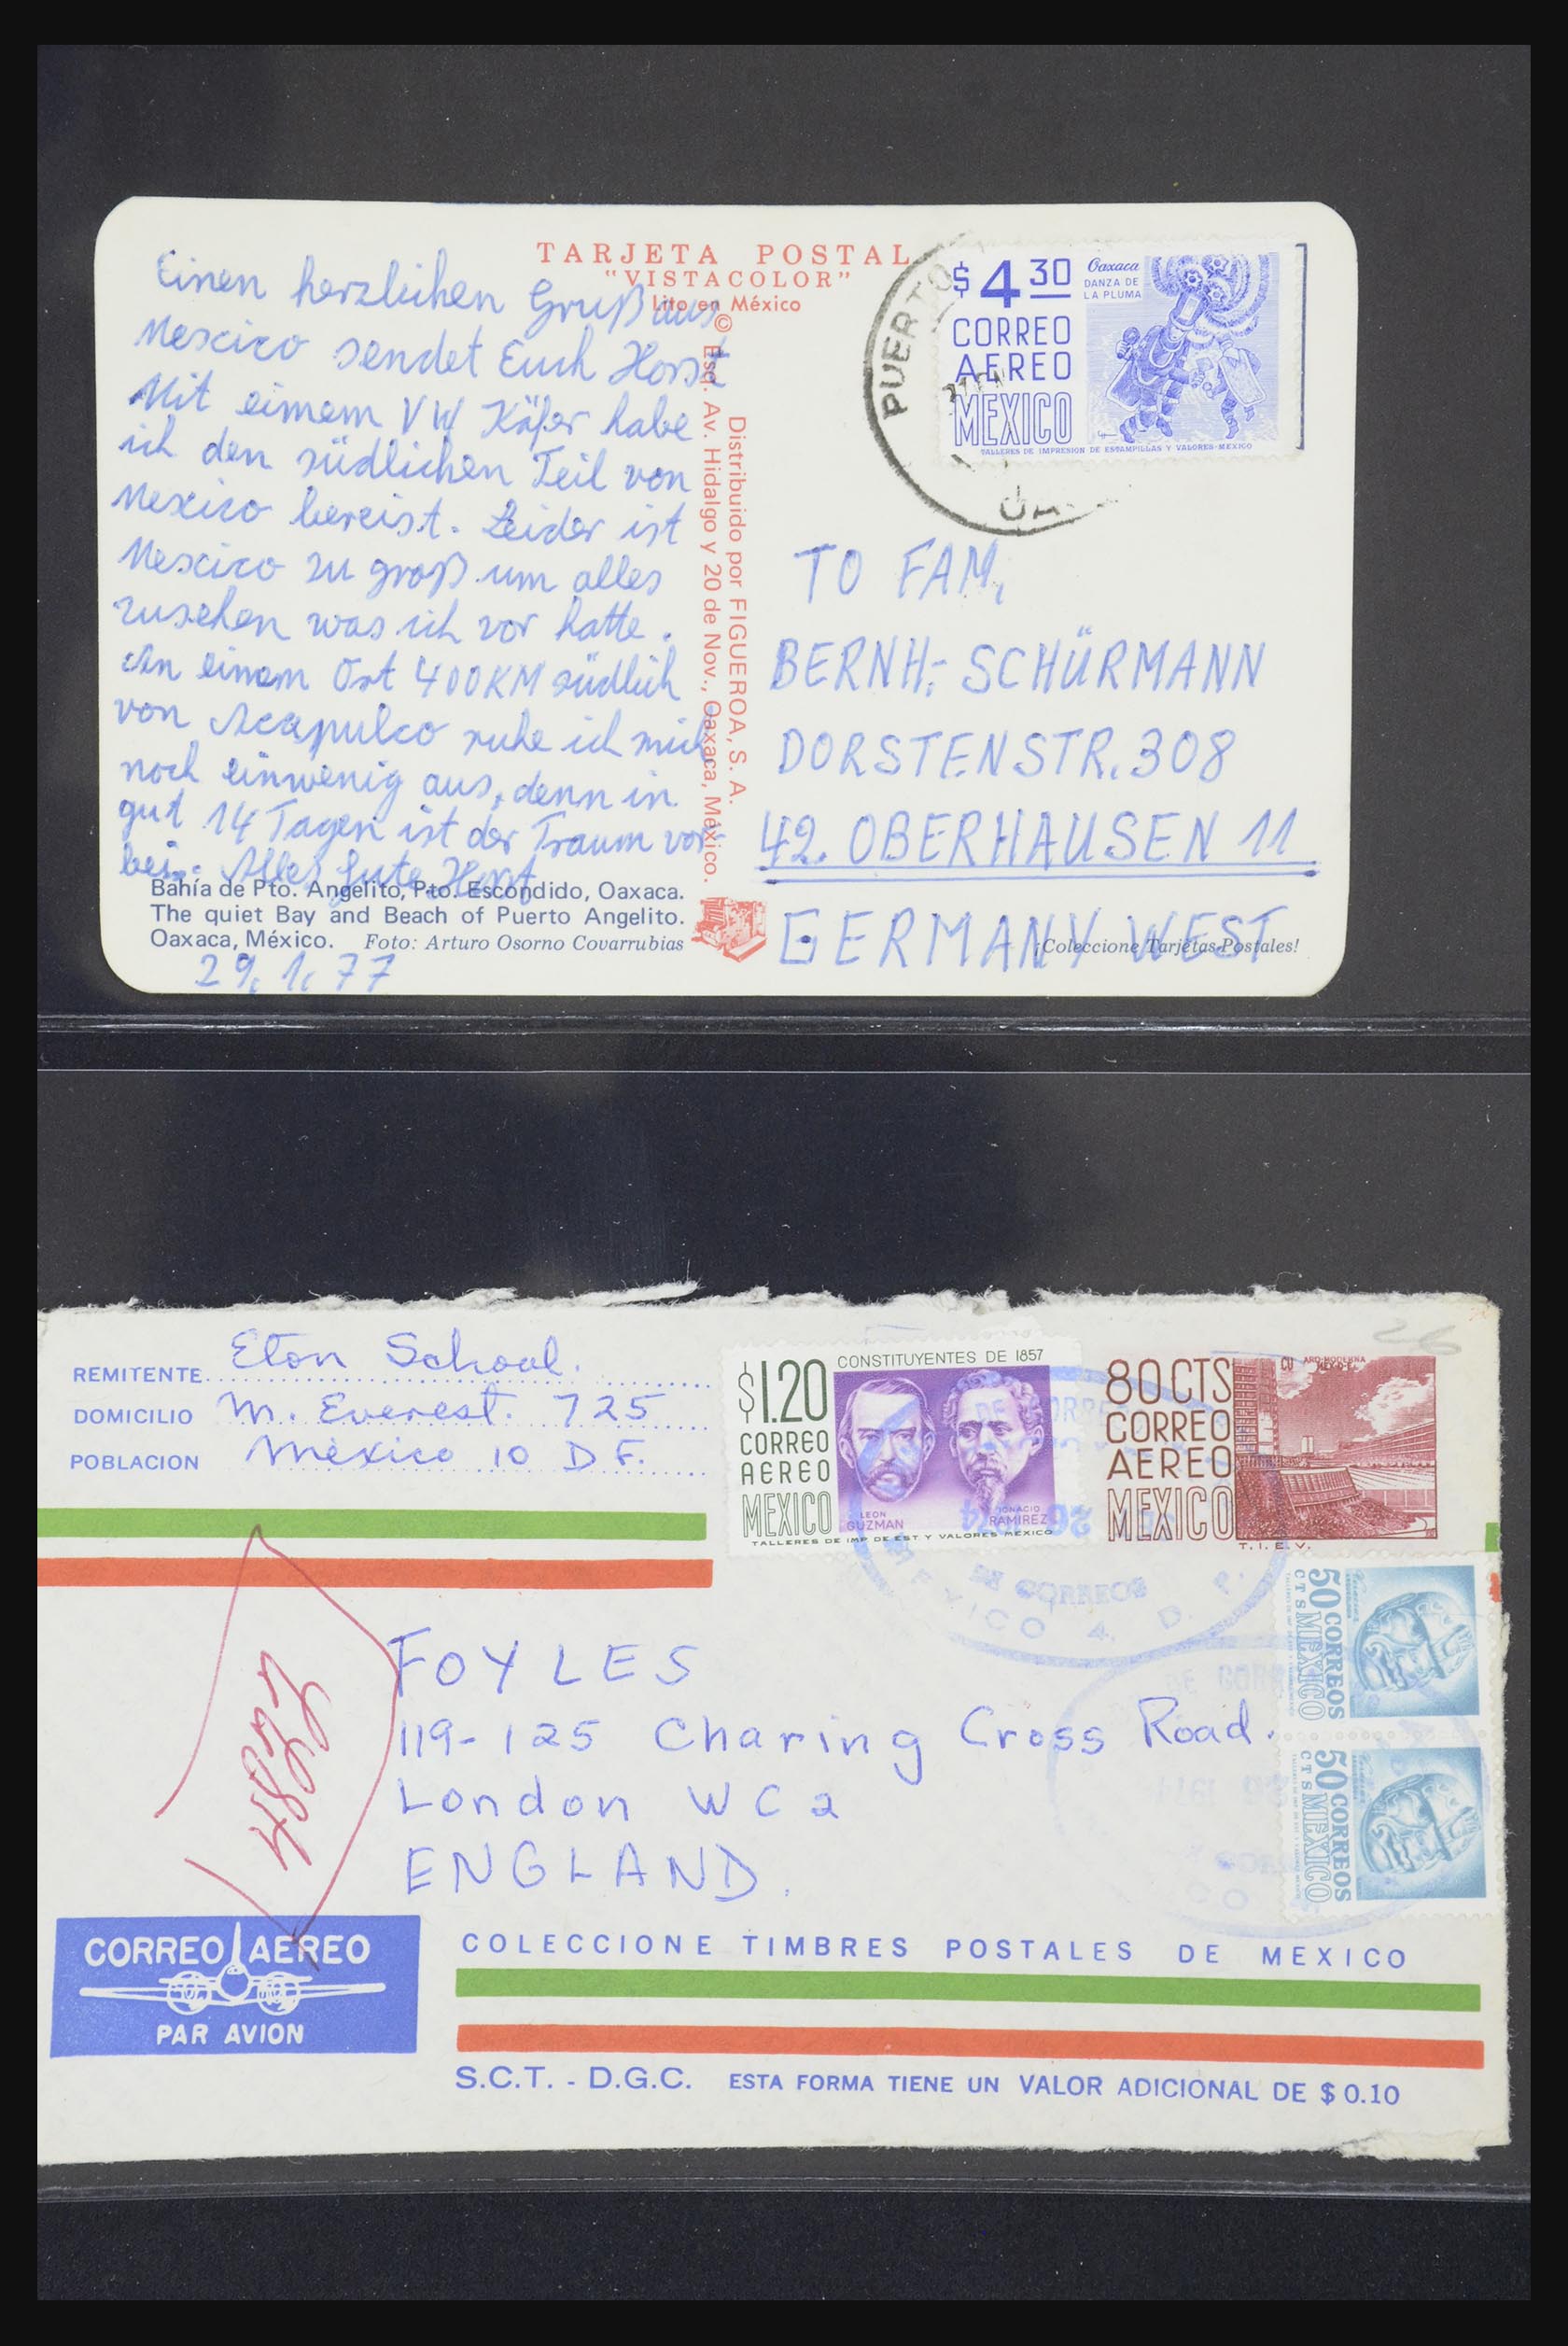 TARJETA POSTAL
"VISTACOLOR"
Lito en México
Einen herzlichen Gruß aus
Mexcico sendet Euch Horst
Mit einem VW Käfer habe
ich den südlichen Teil von
Mexcico bereist. Leider ist
Mexcico zu groß um alles
zusehen was ich vor hatte.
An einem Ort 400KM südlich
von Acapulco ruhe ich mich
noch einwenig aus, denn in
gut 14 Tagen ist der Traum vor-
bei. Alles Gute Horst
Bahía de Pto. Angelito, Pto. Escondido, Oaxaca.
The quiet Bay and Beach of Puerto Angelito.
Oaxaca, México. Foto: Arturo Osorno Covarrubias
29.1.77
Distribuido por FIGUEROA, S. A.
© Esq. Av. Hidalgo y 20 de Nov., Oaxaca, México.
PUERTO
$4 30
Oaxaca
DANZA DE
LA PLUMA
CORREO
AEREO
MEXICO
TALLERES DE IMPRESION DE ESTAMPILLAS Y VALORES-MEXICO
TO FAM,
BERNH.- SCHÜRMANN
DORSTENSTR. 308
42. OBERHAUSEN 11
GERMANY WEST
¡Coleccione Tarjetas Postales!
REMITENTE Eton School.
DOMICILIO M. Everest. 725
POBLACION México 10 D F.
$1.20
CONSTITUYENTES DE 1857
CORREO
AEREO
MEXICO
LEON
GUZMAN
IGNACIO
RAMIREZ
TALLERES DE IMP DE EST. Y VALORES MEXICO
80 CTS
CU ARQ-MODERNA
MEX D.F.
CORREO
AEREO
MEXICO
T.I.E.V.
DE CORREOS
MEXICO 4, D. F.
50 CORREOS
CTS MEXICO
50 CORREOS
CTS MEXICO
26
FOYLES
119-125 Charing Cross Road.
London WC2
ENGLAND.
CORREO AEREO
PAR AVION
COLECCIONE TIMBRES POSTALES DE MEXICO
S.C.T. - D.G.C. ESTA FORMA TIENE UN VALOR ADICIONAL DE $0.10